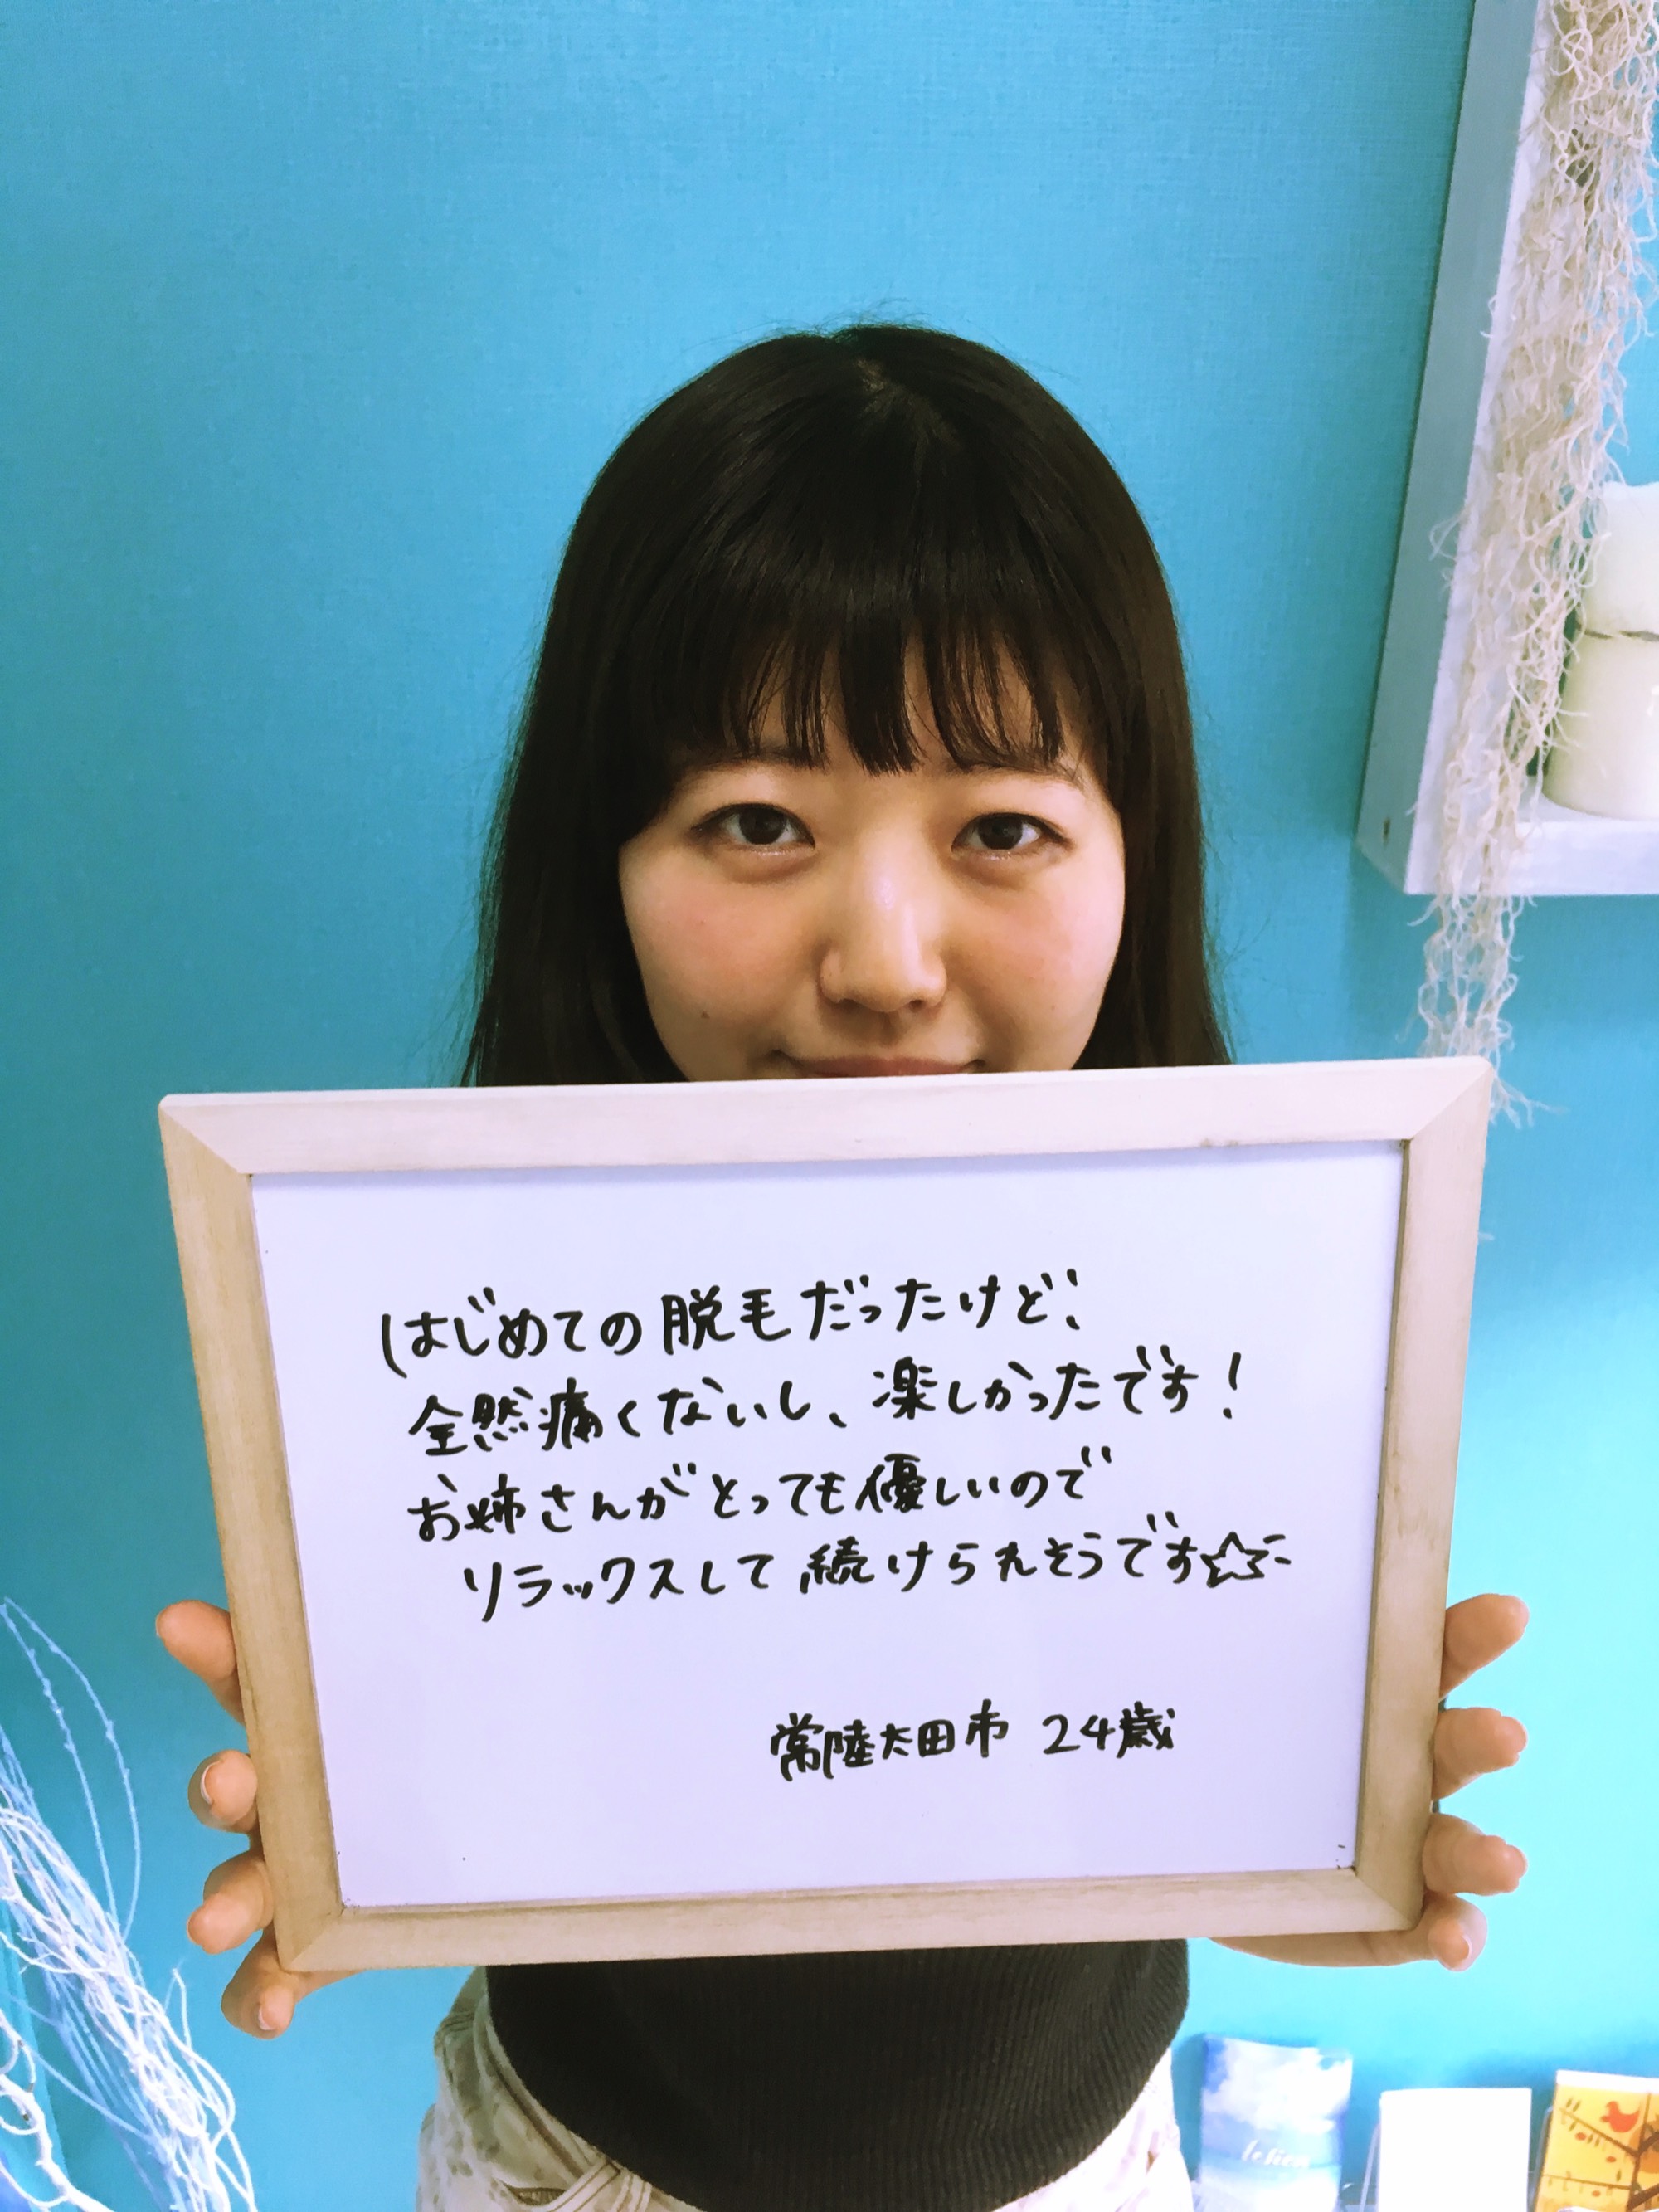 はじめての脱毛だったけど、
全然痛くないし、楽しかったです！
お姉さんがとっても優しいので
リラックスして続けられそうです☆
常陸太田市 24歳